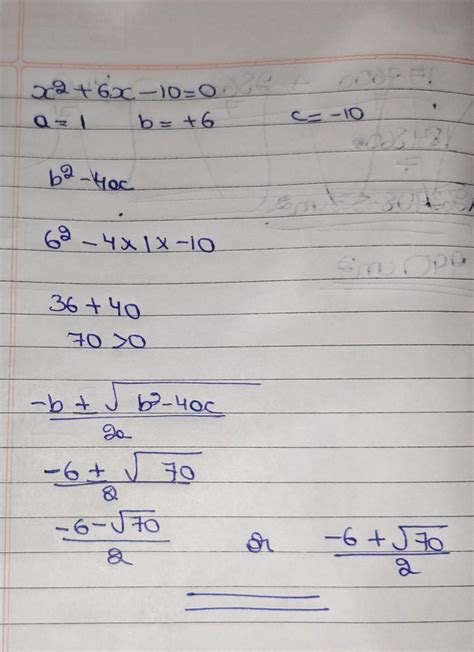 x² + 6x - 10 = 0
a = 1 b = +6 c = -10
b² - 4ac
6² - 4 x 1 x - 10
36 + 40
70 > 0
-b ± √b² - 4ac / 2a
-6 ± √70 / 2
-6 - √70 / 2 or -6 + √70 / 2